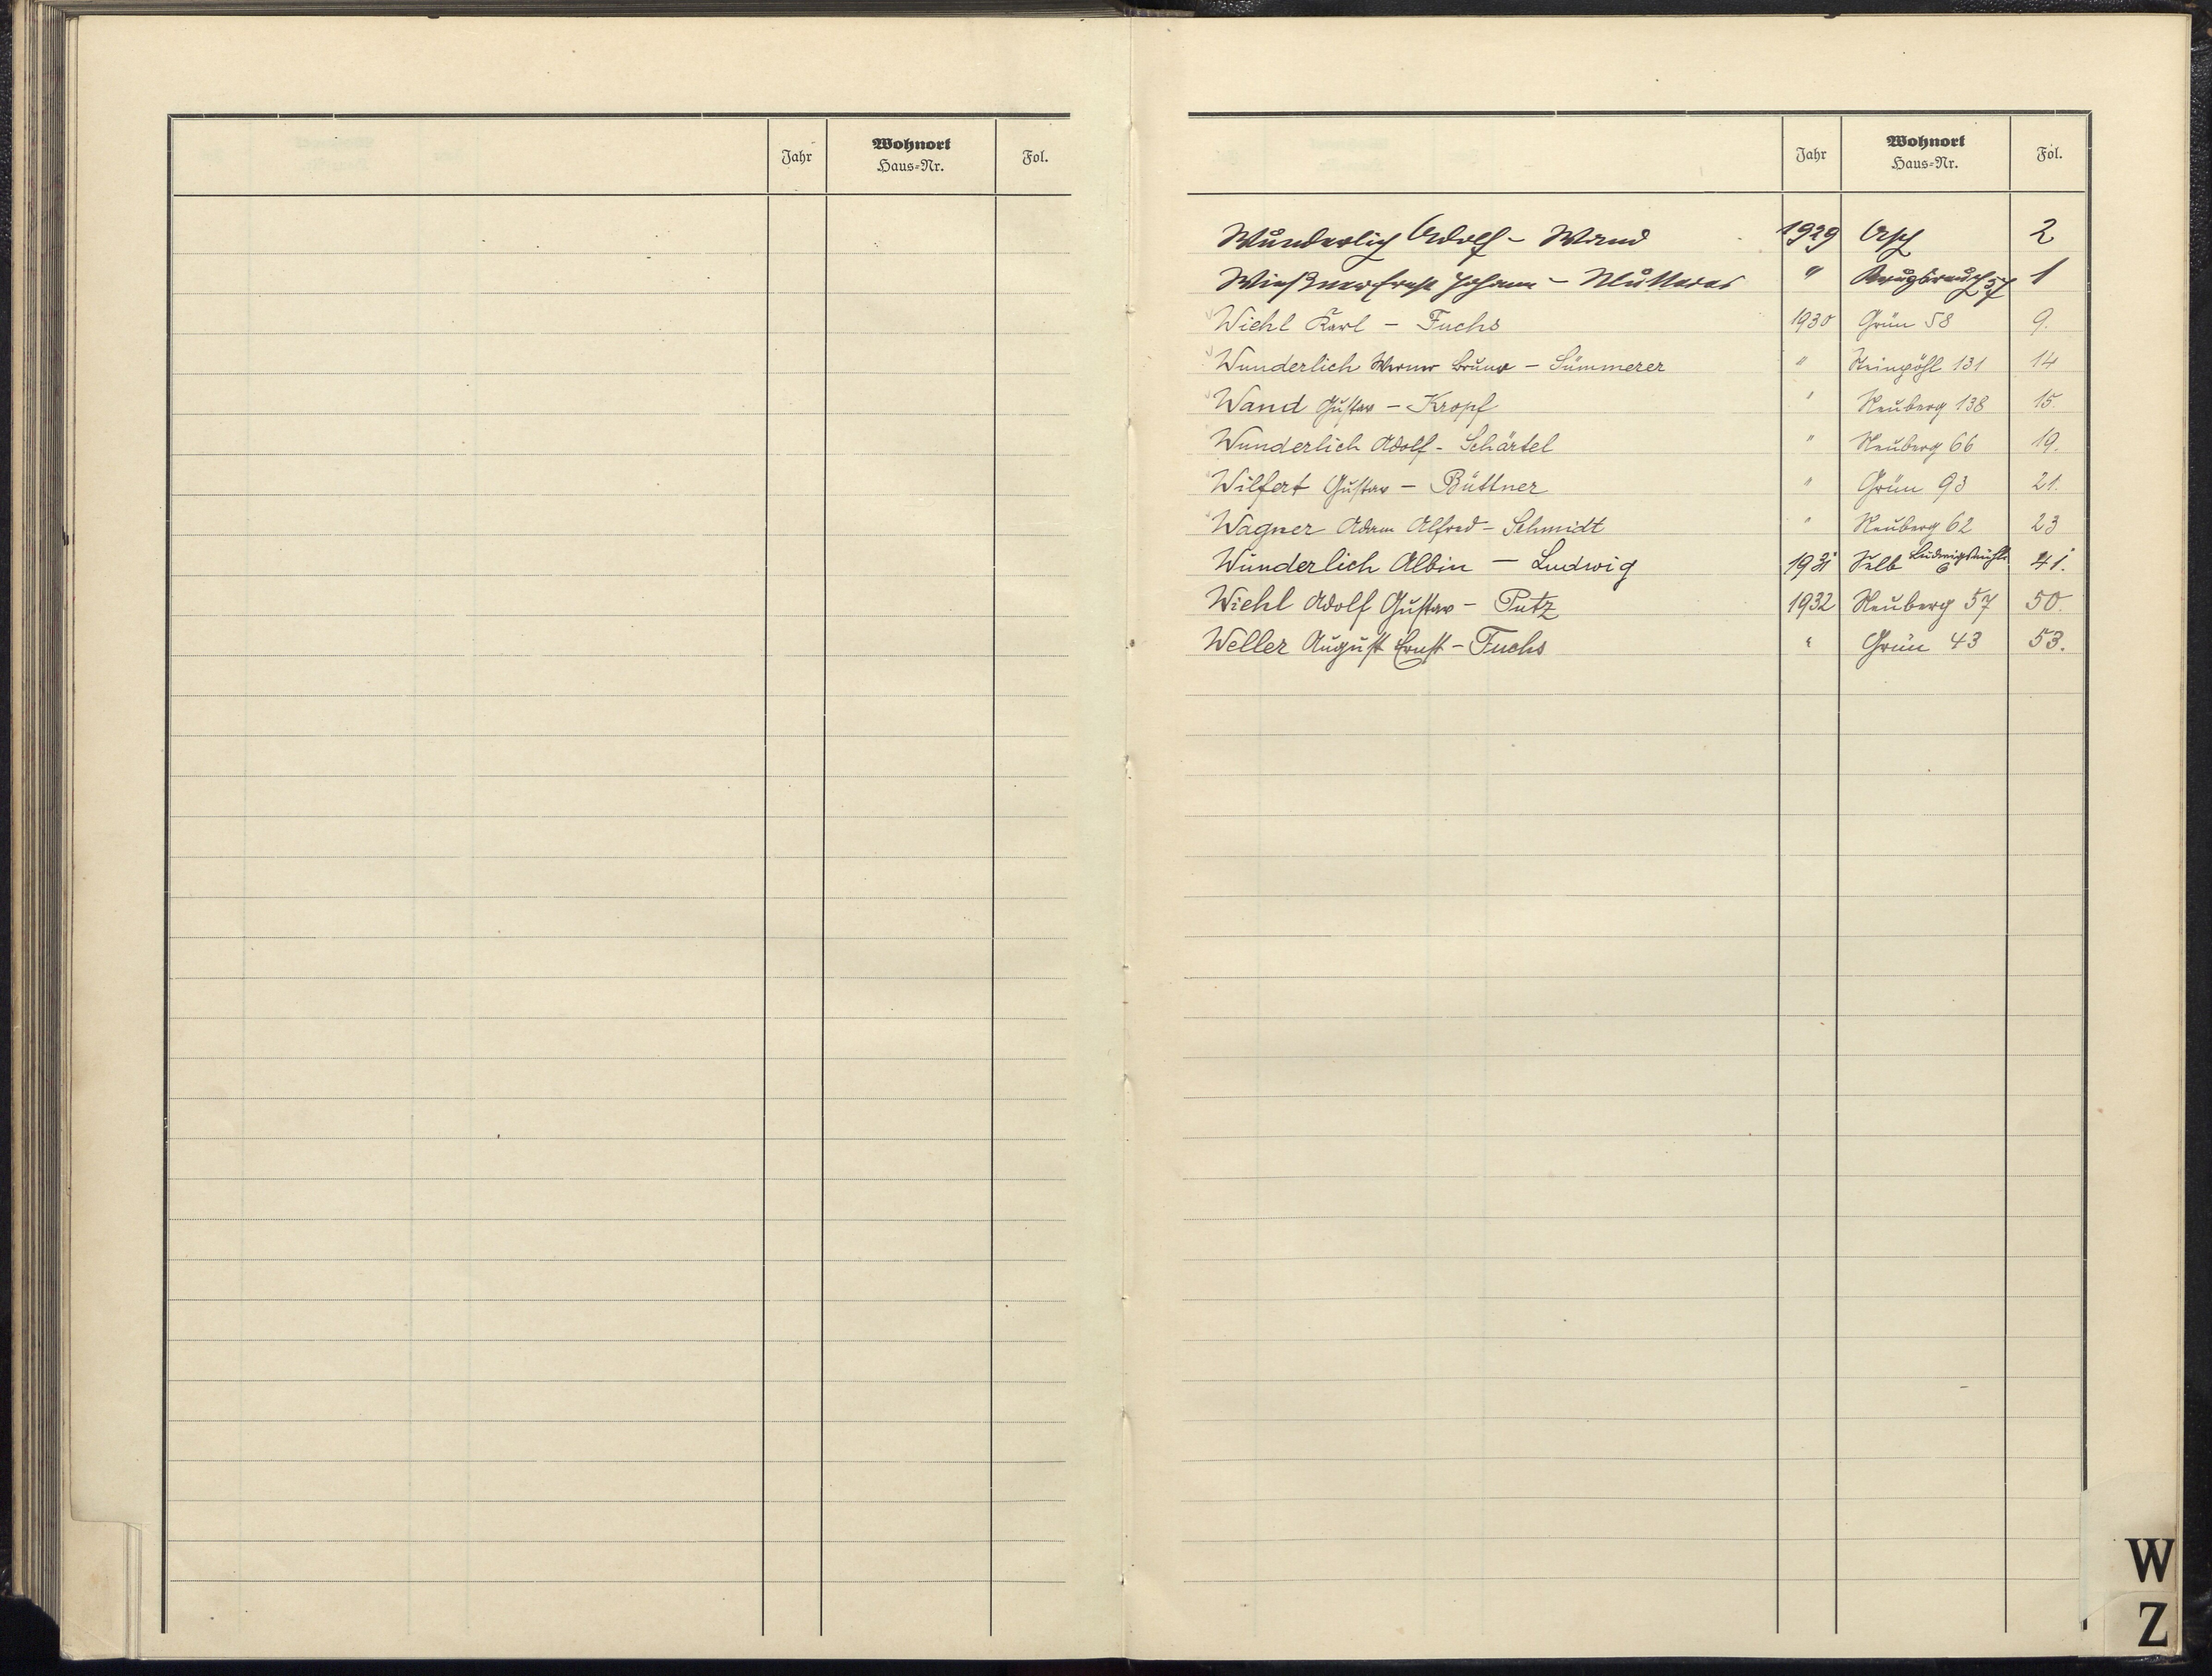 Jahr Wohnort Haus-Nr. Fol.
Jahr Wohnort Haus-Nr. Fol.
Wunderlich Adolf - Wand 1929 Asch 2
Wießner Ernst Johann - " 57 1
Wiehl Karl - Fuchs 1930 Grün 58 9.
Wunderlich Werner Bruno - Sümmerer " 131 14
Wand Gustav - Kropf " Neuberg 138 15.
Wunderlich Adolf - Schärtel " Neuberg 66 19.
Wilfert Gustav - Büttner " Grün 93 21.
Wagner Adam Alfred - Schmidt " Neuberg 62 23
Wunderlich Albin - Ludwig 1931 Selb Ludwigsmühle 6 41.
Wiehl Adolf Gustav - Putz 1932 Neuberg 57 50.
Weller August Ernst - Fuchs " Grün 43 53.
W
Z